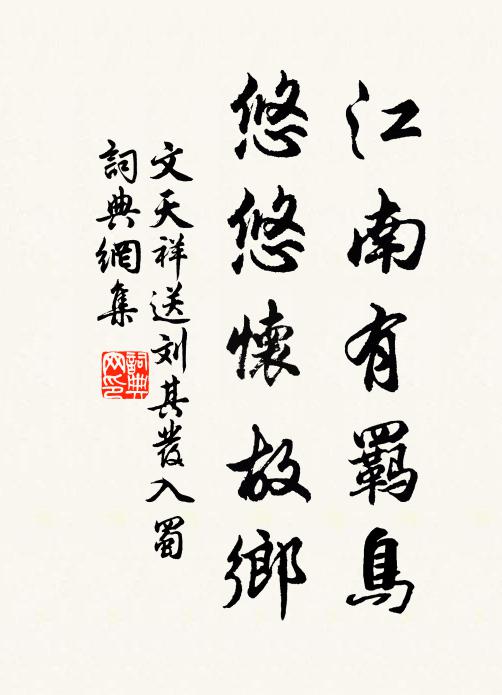 江南有羁鳥
悠悠懷故鄉
文天祥送刘其發入蜀
詞典網集
詞典网印